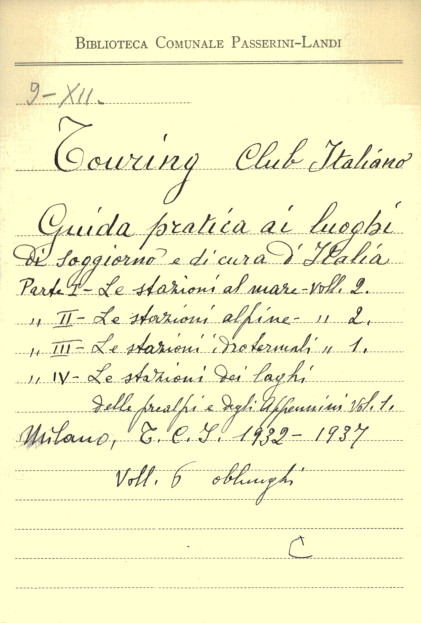 BIBLIOTECA COMUNALE PASSERINI-LANDI
9-XII.
Touring Club Italiano
Guida pratica ai luoghi
di soggiorno e di cura d'Italia
Parte I - Le stazioni al mare - voll. 2.
" II - Le stazioni alpine - " 2.
" III - Le stazioni idrotermali " 1.
" IV - Le stazioni dei laghi
delle prealpi e degli Appennini Vol. 1.
Milano, T. C. I. 1932 - 1937
Voll. 6 oblunghi
C